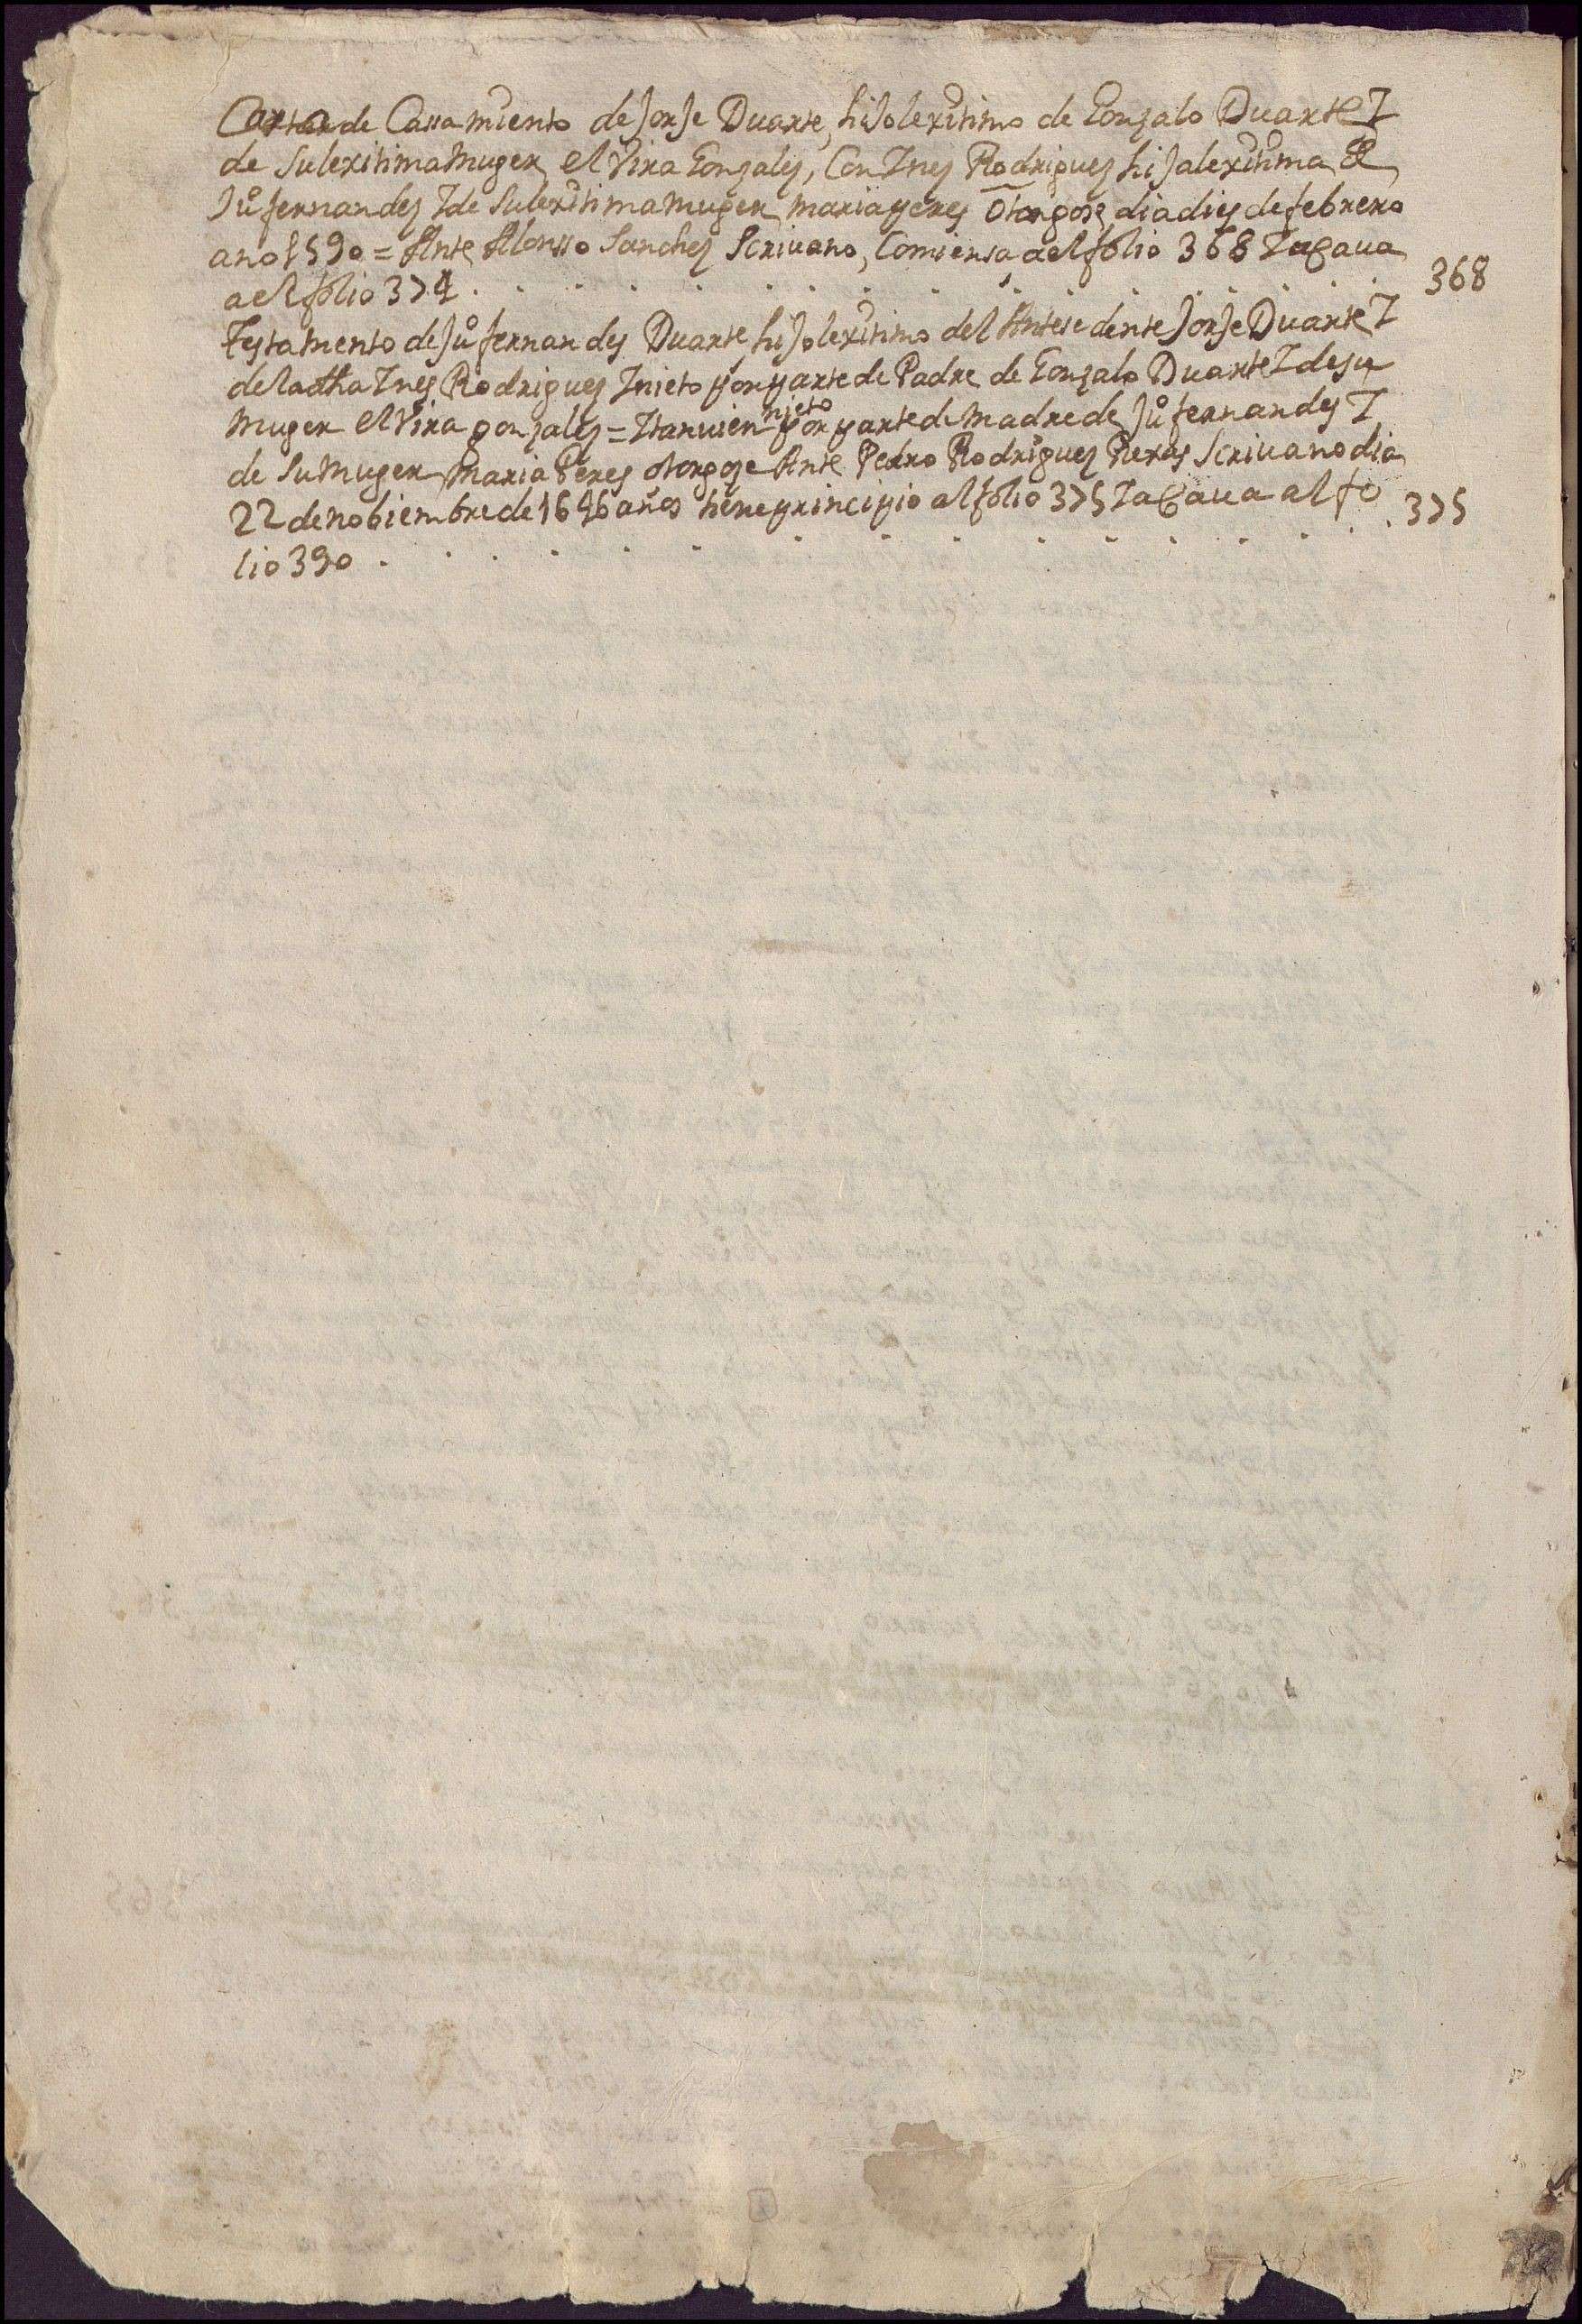 Carta de Cassamiento de JorJe Duarte, hiJo lexitimo de Gonzalo Duarte I
de Su lexitima Muger elVira Gonzales, Con Ines Rodriguez hiJa lexitima de
Juº fernandes I de Su lexitima Muger maria peres otorgose dia dies de febrero
ano 1590 = Ante Alonsso Sanches Scrivano, Comiensa a el folio 368 I acava
a el folio 374 . . . . . . . . . . . . . . 368
Testamento de Juº fernandes Duarte hiJo lexitimo del Antesedente JorJe Duarte I
de la dha Ines Rodrigues I nieto por parte de Padre de Gonzalo Duarte I de su
Muger elVira gonzales = I tanvien nieto por parte de Madre de Juº fernandes I
de Su Muger Maria Peres otorgose Ante Pedro Rodrigues Scrivano dia
22 de nobiembre de 1646 años tiene principio al folio 375 I acava al fo
lio 390 . . . . . . . . . . . . . . 375